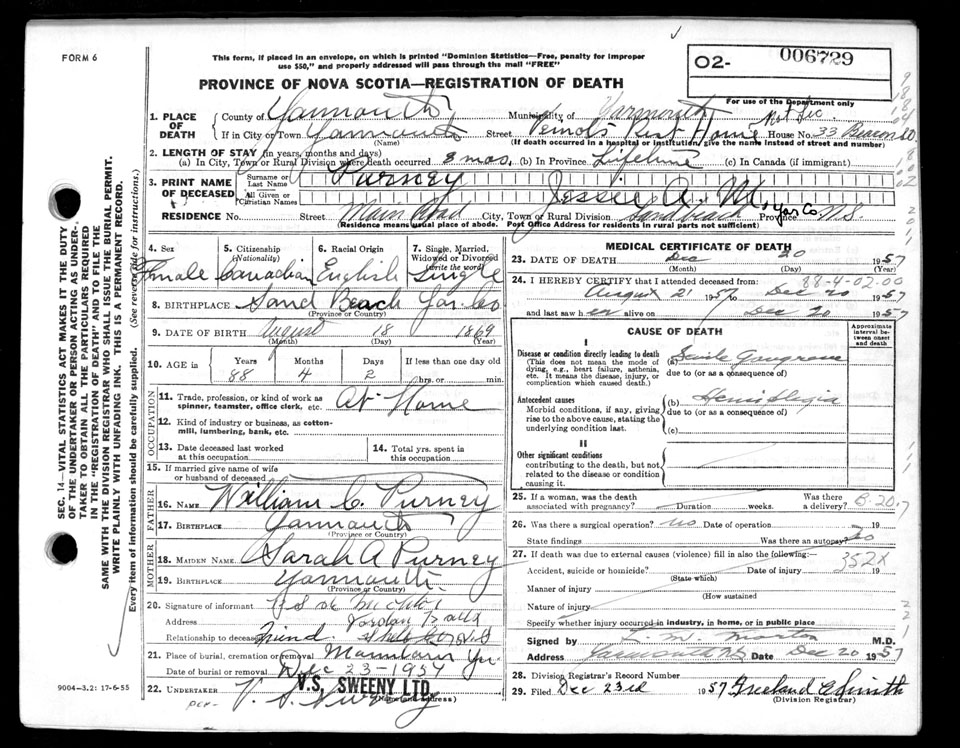 FORM 6
This form, if placed in an envelope, on which is printed "Dominion Statistics—Free, penalty for improper
use $50," and properly addressed will pass through the mail "FREE"
PROVINCE OF NOVA SCOTIA—REGISTRATION OF DEATH
O2- 006729
For use of the Department only
1. PLACE OF DEATH
County of Yarmouth Municipality of Yarmouth
If in City or Town Yarmouth Street Vernot's Rest Home House No. 33 Beacon
(Name) (If death occurred in a hospital or institution, give the name instead of street and number)
2. LENGTH OF STAY (in years, months and days)
(a) In City, Town or Rural Division where death occurred 3 mos. (b) In Province Lifetime (c) In Canada (if immigrant)
3. PRINT NAME OF DECEASED
Surname or Last Name Purney
All Given or Christian Names Jessie A. M.
RESIDENCE No. Street Main Road City, Town or Rural Division Sand Beach Province Yar Co N.S.
(Residence means usual place of abode. Post Office Address for residents in rural parts not sufficient)
4. Sex Female
5. Citizenship (Nationality) Canadian
6. Racial Origin English
7. Single, Married, Widowed or Divorced (write the word) Single
8. BIRTHPLACE Sand Beach Yar. Co
(Province or Country)
9. DATE OF BIRTH August 18 1869
(Month) (Day) (Year)
10. AGE in Years Months Days If less than one day old
88 4 2 hrs. or min.
OCCUPATION
11. Trade, profession, or kind of work as
spinner, teamster, office clerk, etc. At Home
12. Kind of industry or business, as cotton-
mill, lumbering, bank, etc.
13. Date deceased last worked
at this occupation
14. Total yrs. spent in
this occupation
15. If married give name of wife
or husband of deceased
FATHER
16. NAME William C. Purney
17. BIRTHPLACE Yarmouth
(Province or Country)
MOTHER
18. MAIDEN NAME Sarah A Purney
19. BIRTHPLACE Yarmouth
(Province or Country)
20. Signature of informant
Address Jordan Falls
Relationship to deceased Friend. Shel. Co. N.S
21. Place of burial, cremation or removal Mountain
Date of burial or removal Dec 23-1957
V.S. SWEENY LTD.
22. UNDERTAKER V. S. Sweeny
(Name and address)
9004-3.2: 17-6-55
MEDICAL CERTIFICATE OF DEATH
23. DATE OF DEATH Dec 20 1957
(Month) (Day) (Year)
88-4-02-00
24. I HEREBY CERTIFY that I attended deceased from:
August 21 1957 to Dec 20 1957
and last saw her alive on Dec 20 1957
CAUSE OF DEATH
Approximate interval between onset and death
I
Disease or condition directly leading to death
(This does not mean the mode of
dying, e.g., heart failure, asthenia,
etc. It means the disease, injury, or
complication which caused death.)
(a) Senile Gangrene
due to (or as a consequence of)
Antecedent causes
Morbid conditions, if any, giving
rise to the above cause, stating the
underlying condition last.
(b) Hemiplegia
due to (or as a consequence of)
(c)
II
Other significant conditions
contributing to the death, but not
related to the disease or condition
causing it.
25. If a woman, was the death
associated with pregnancy? Duration weeks. Was there a delivery?
26. Was there a surgical operation? no Date of operation 19
State findings Was there an autopsy? no
27. If death was due to external causes (violence) fill in also the following:—
352X
Accident, suicide or homicide? Date of injury 19
(State which)
Manner of injury
(How sustained
Nature of injury
Specify whether injury occurred in industry, in home, or in public place
Signed by L. M. Morton M.D.
Address Yarmouth NS Date Dec 20 1957
28. Division Registrar's Record Number
29. Filed Dec 23rd 1957 Freeland E Smith
(Division Registrar)
SEC. 14—VITAL STATISTICS ACT MAKES IT THE DUTY
OF THE UNDERTAKER OR PERSON ACTING AS UNDER-
TAKER TO OBTAIN ALL THE PARTICULARS REQUIRED
IN THE "REGISTRATION OF DEATH" AND TO FILE THE
SAME WITH THE DIVISION REGISTRAR WHO SHALL ISSUE THE BURIAL PERMIT.
WRITE PLAINLY WITH UNFADING INK. THIS IS A PERMANENT RECORD.
Every item of information should be carefully supplied. (See reverse side for instructions.)